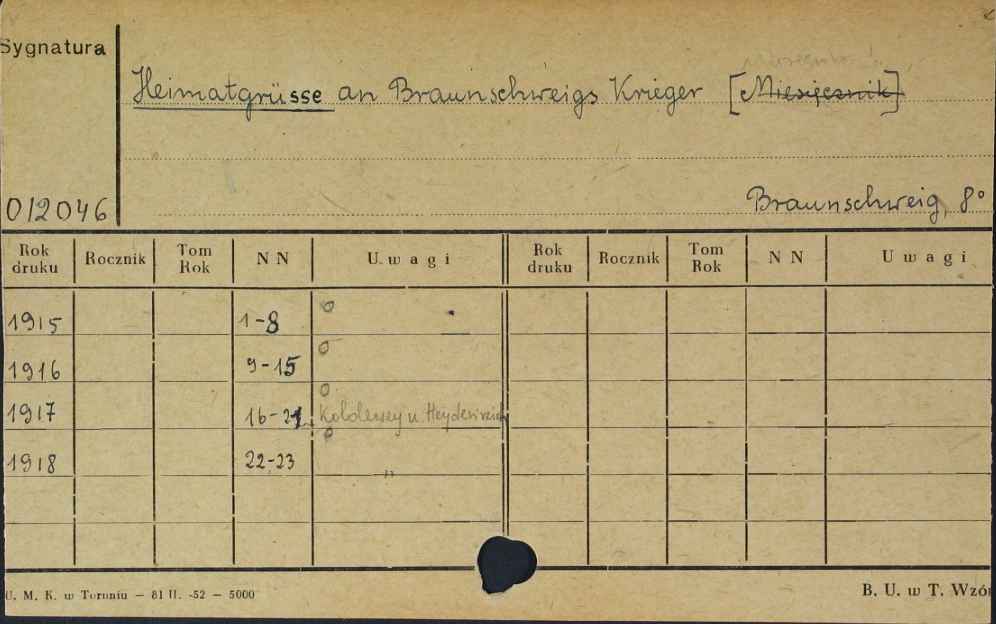 Sygnatura
Heimatgrüsse an Braunschweigs Krieger [Miesięcznik]
012046
Braunschweig, 8°
Rok druku Rocznik Tom Rok N N U w a g i Rok druku Rocznik Tom Rok N N U w a g i
1915 1-8
1916 9-15
1917 16-21 u.
1918 22-23 "
U. M. K. w Toruniu — 81 II. -52 — 5000 B. U. w T. Wzór